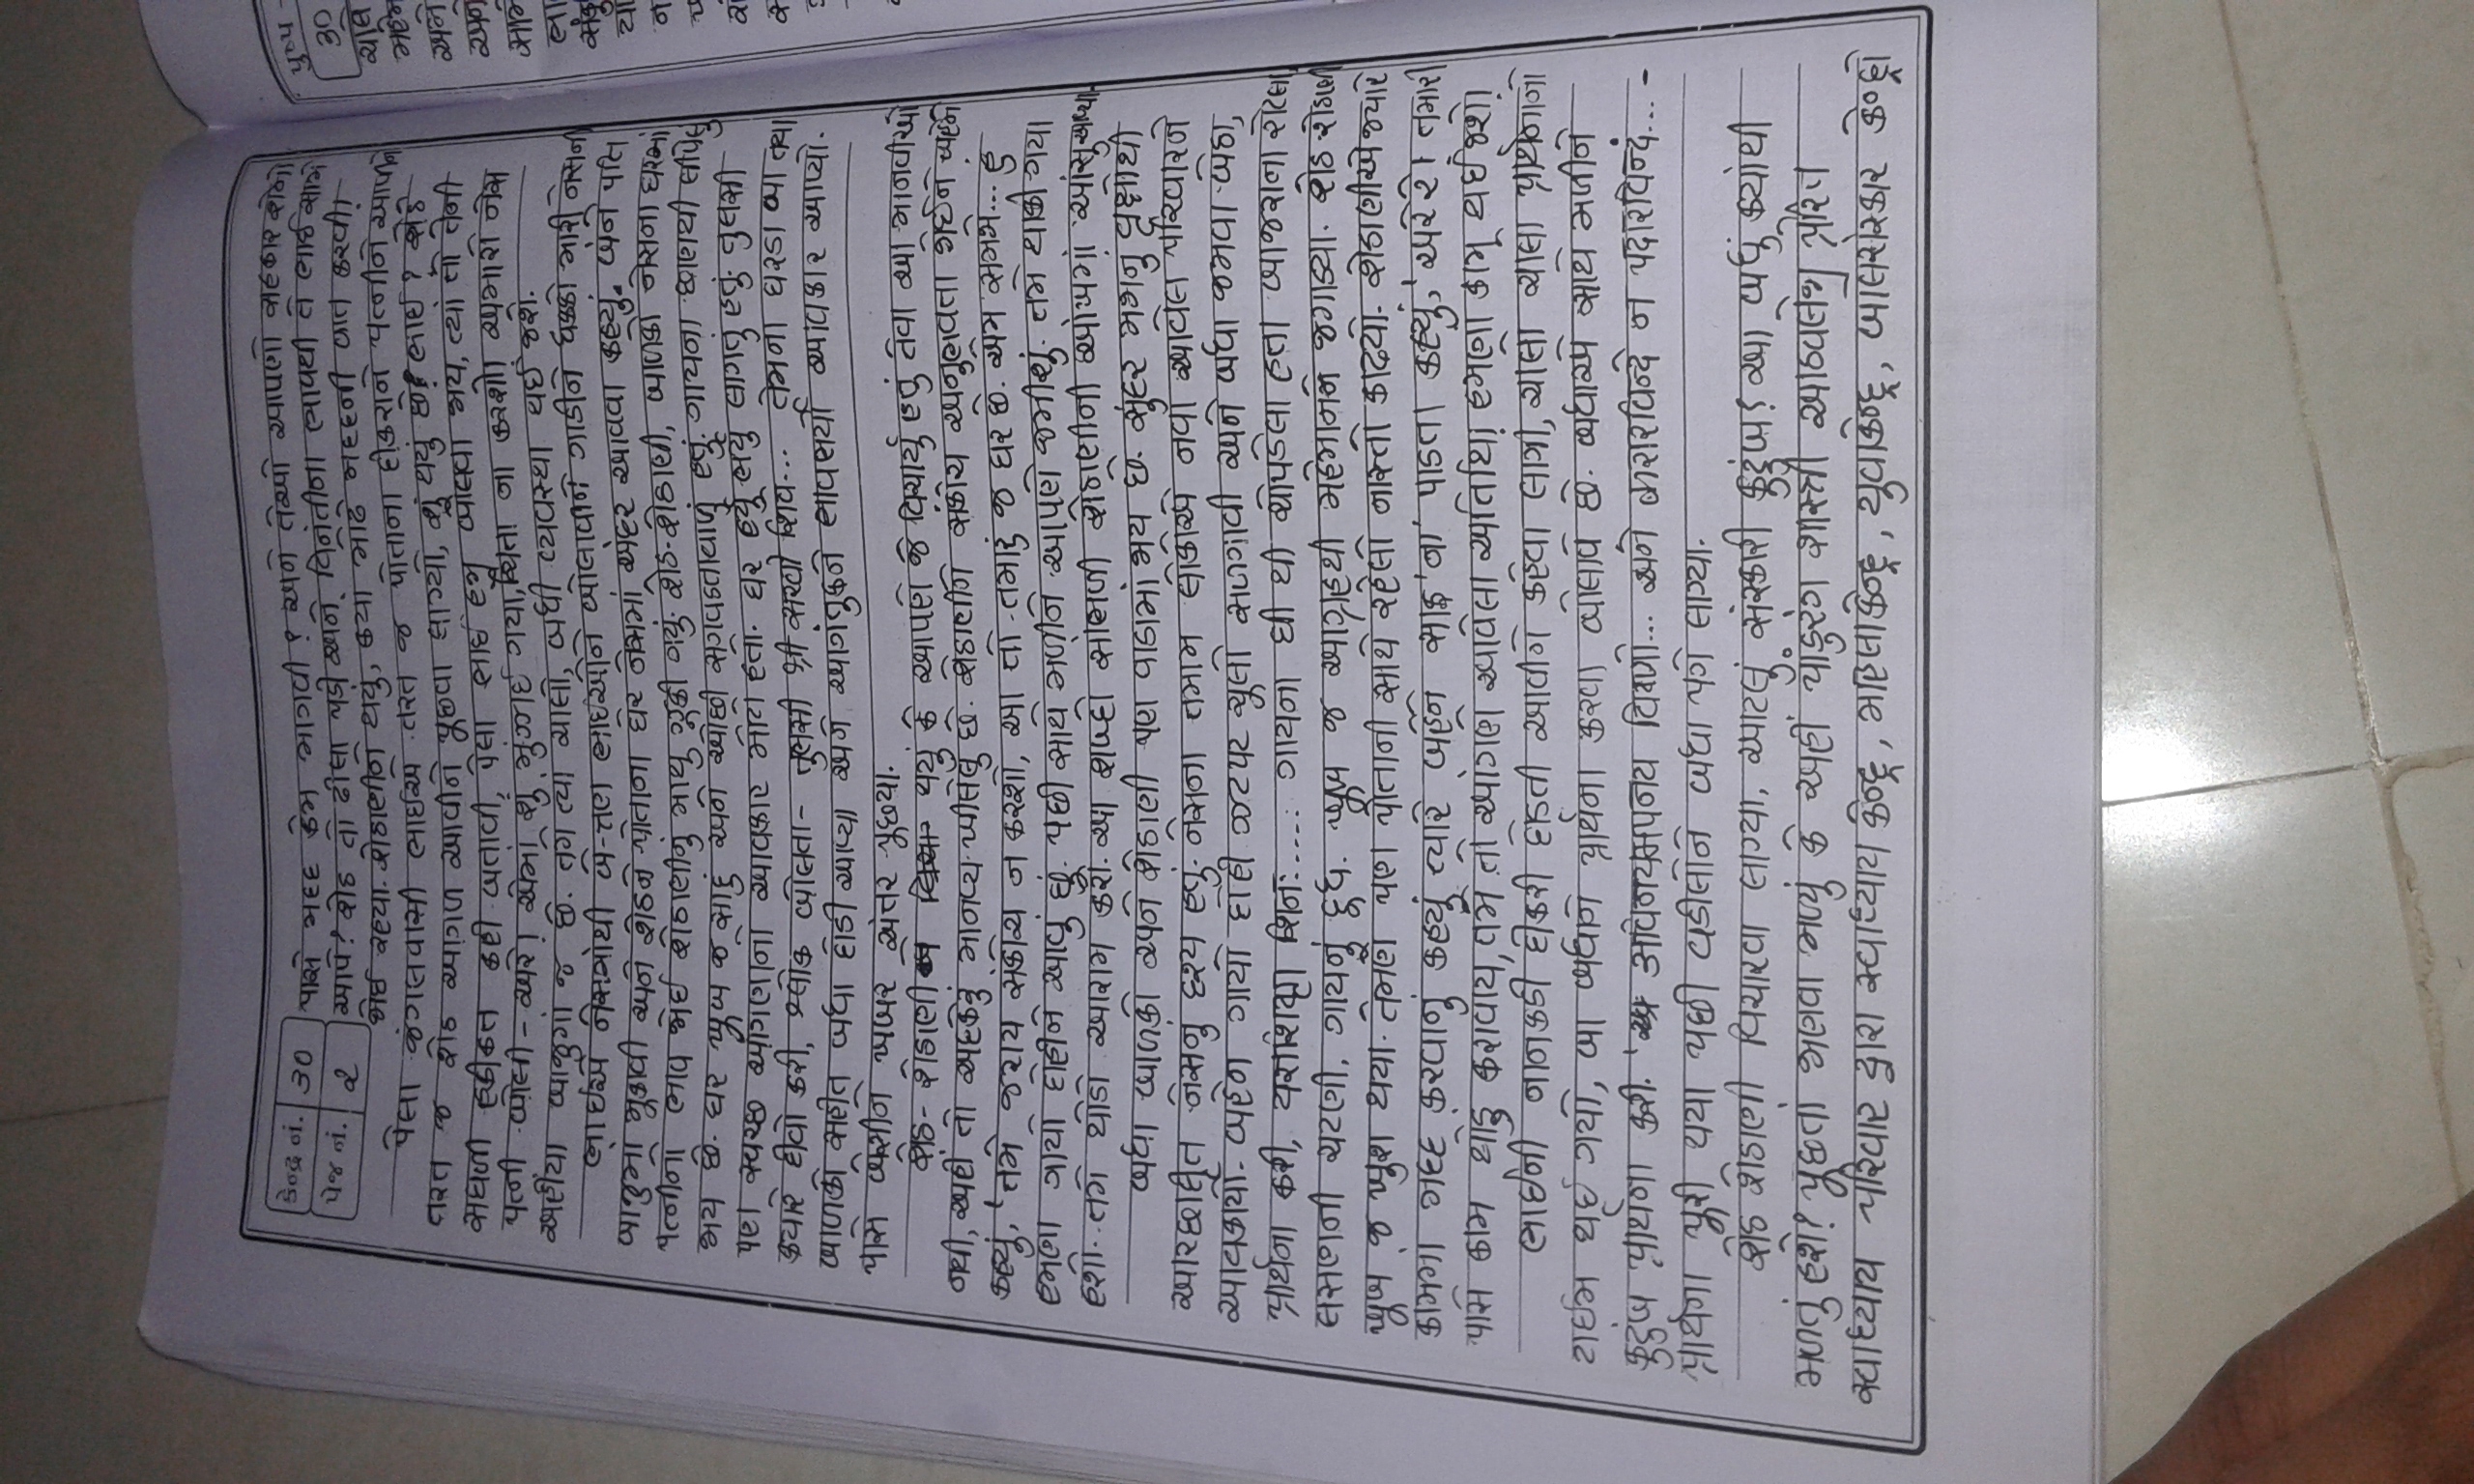 કેન્દ્ર નં. 30
પેજ નં. ૨
પાસે મદદ કેમ માગવી? અને તેઓ આપણો સહકાર શેનો
આપે? શેઠ તો ઢીલા પડી અને વિનંતીના ભાવથી તે ભાઈ સામે
જોઈ રહયા. શેઠાણીને થયું, કયાં મોઢે મદદની વાત કરવી!
પેલા જંગલવાસી ભાઈએ તરત જ પોતાના દીકરાને પત્નીને આપીને
તરત જ શેઠ આગળ આવીને પૂછવા લાગ્યો, શું થયું છે ભાઈ? શેઠે
સઘળી હકીકત કહી બતાવી, પેલા ભાઈ હજુ બોલવા જાય, ત્યાં તો તેની
પત્ની બોલી - અરે! એમાં શું મુંઝાઈ ગયા, ચિંતા ના કરશો! અમારો નેસ
અહીંયા બાજુમાં જ છે. તમે ત્યાં ચાલો, બધી વ્યવસ્થા થઈ જશે.
ભાઈએ નેસમાંથી બે-ત્રણ ભાઈઓને બોલાવીને ગાડીને ધક્કો મારી નેસની
બાજુમાં મૂકાવી અને શેઠને પોતાના ઘેર નેસમાં અંદર આવવા કહયું. બંને પતિ
પત્નીનો ભાવ જોઈ શેઠાણીનું માથુ ઝૂકી ગયું. શેઠ-શેઠાણી, બાળકો નેસના ઘરમાં
જાય છે. ઘર ખૂબ જ સાદું અને ઓછી સગવડતાવાળું હતું. ગાયના છાણથી લીપેલુ
પણ સ્વચ્છ આંગણાનો આવકાર મોટો હતો. ઘર હર્યુ ભર્યુ લાગતું હતું. તુલસી
ક્યારે દીવો કરી, શ્લોક બોલતા - તુલસી શ્રી સખી શિવે... તેમના ઘરડા બા તથા
બાળકો સહીત બધા દોડી આવ્યા અને આગંતુકને ભાવભર્યો આવકાર આપ્યો.
પાસે બેસીને ખબર અંતર પૂછયા.
શેઠ - શેઠાણી ને થયું કે આપણે જે વિચાર્યું હતું તેવા આ માનવીઓ
નથી, અહીં તો માનવ્ય ખીલેલું છે. શેઠાણીને સંકોચ અનુભવતા જોઈને બહેને
કહયું, 'તમે જરાય સંકોચ ન કરશો, આ તો તમારું જ ઘર છે. એમ સમજો... હું
હમણા ગાયો દોહીને આવું છું. પછી સાથે મળીને આપણે જમીશું. તમે થાકી ગયા
હશો. તમે થોડો આરામ કરો. આ શબ્દો સાંભળી શેઠાણીની આંખમાં આંસુ આવ્યા.
બધા બાળકો અને શેઠાણી પણ વાડામાં જાય છે. સુંદર મજાનું વૃક્ષોથી
આચ્છાદીત નેસનું દૃશ્ય હતું. નેસના તમામ લોકોએ નવાં આવેલ પરિવારને
આવકાર્યો. બહેને ગાયો દોહી ઝટપટ ચૂલો સળગાવી અને બધા જમવા બેઠા,
પ્રાર્થના કરી, યજ્ઞશિષ્ટા શિનઃ..... ગાયના ઘી થી ચોપડેલા હતા બાજરાના રોટલા
લસણની ચટણી, ગાયનું દૂધ. ખૂબ જ આગ્રહથી મહેમાનને જમાડયા. શેઠ-શેઠાણી
ખૂબ જ ખુશ થયા. તેમણે પણ પોતાની સાથે રહેલો નાસ્તો કાઢયો. શેઠાણીએ જ્યારે
કામમાં મદદ કરવાનું કહયું ત્યારે બહેને સાફ 'ના' પાડતા કહયું, 'અરેરે! તમારી
પાસે કામ થોડું કરાવાય, તમે તો આંગણે આવેલા અતિથિ! હમણાં કામ થઈ જશે!
ભાઈની નાનકડી દીકરી દોડતી આવીને કહેવા લાગી, ચાલો ચાલો પ્રાર્થનાનો
ટાઈમ થઈ ગયો, બા બધાને પ્રાર્થના કરવા બોલાવે છે. બધાએ સાથે મળીને
કુટુંબ પ્રાર્થના કરી. ' અવિનયમપનય વિષ્ણો... અને કરારવિન્દે ન પદારવિન્દં... -
પ્રાર્થના પૂરી થયા પછી વડીલોને બધા પગે લાગ્યા.
શેઠ શેઠાણી વિચારવા લાગ્યા, આટલું સંસ્કારી કુટુંબ! આ બધું કયાંથી
મળતું હશે? પૂછતાં જાણવા મળ્યું કે અહીં પાંડુરંગ શાસ્ત્રી આઠવલેજી પ્રેરિત
સ્વાધ્યાય પરિવાર દ્વારા સ્વાધ્યાય કેન્દ્ર, મહિલાકેન્દ્ર, યુવાકેન્દ્ર, બાલસંસ્કાર કેન્દ્રો
પુષ્પ
30